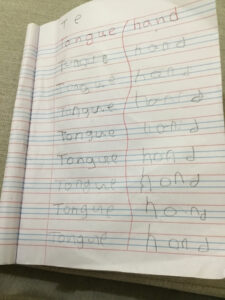 T e
Tongue / hand
Tongue hand
Tongue hand
Tongue hand
Tongue hand
Tongue hand
Tongue hand
Tongue hand
Tongue hand